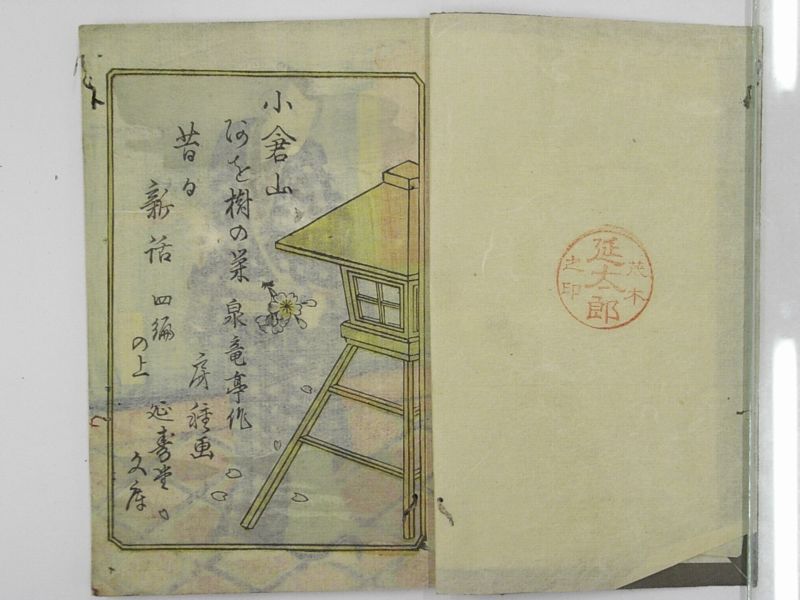 茂木
延太郎
之印
小倉山
あを樹の栄 泉竜亭作
昔日
新話 四編の上
房種画
延寿堂
文庫